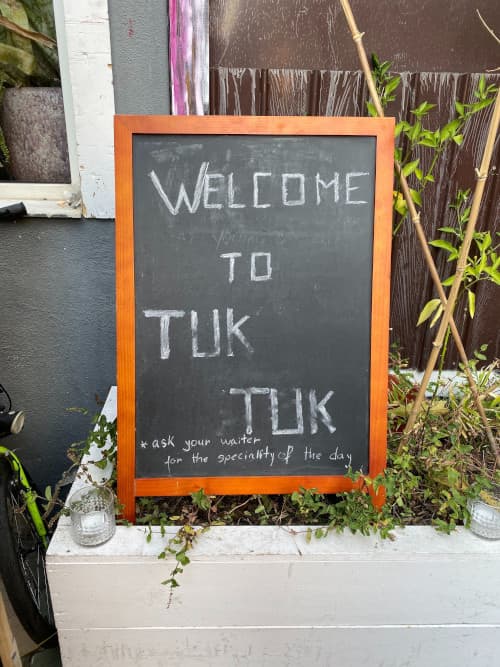 WELCOME
TO
TUK
TUK
* ask your waiter
for the speciality of the day